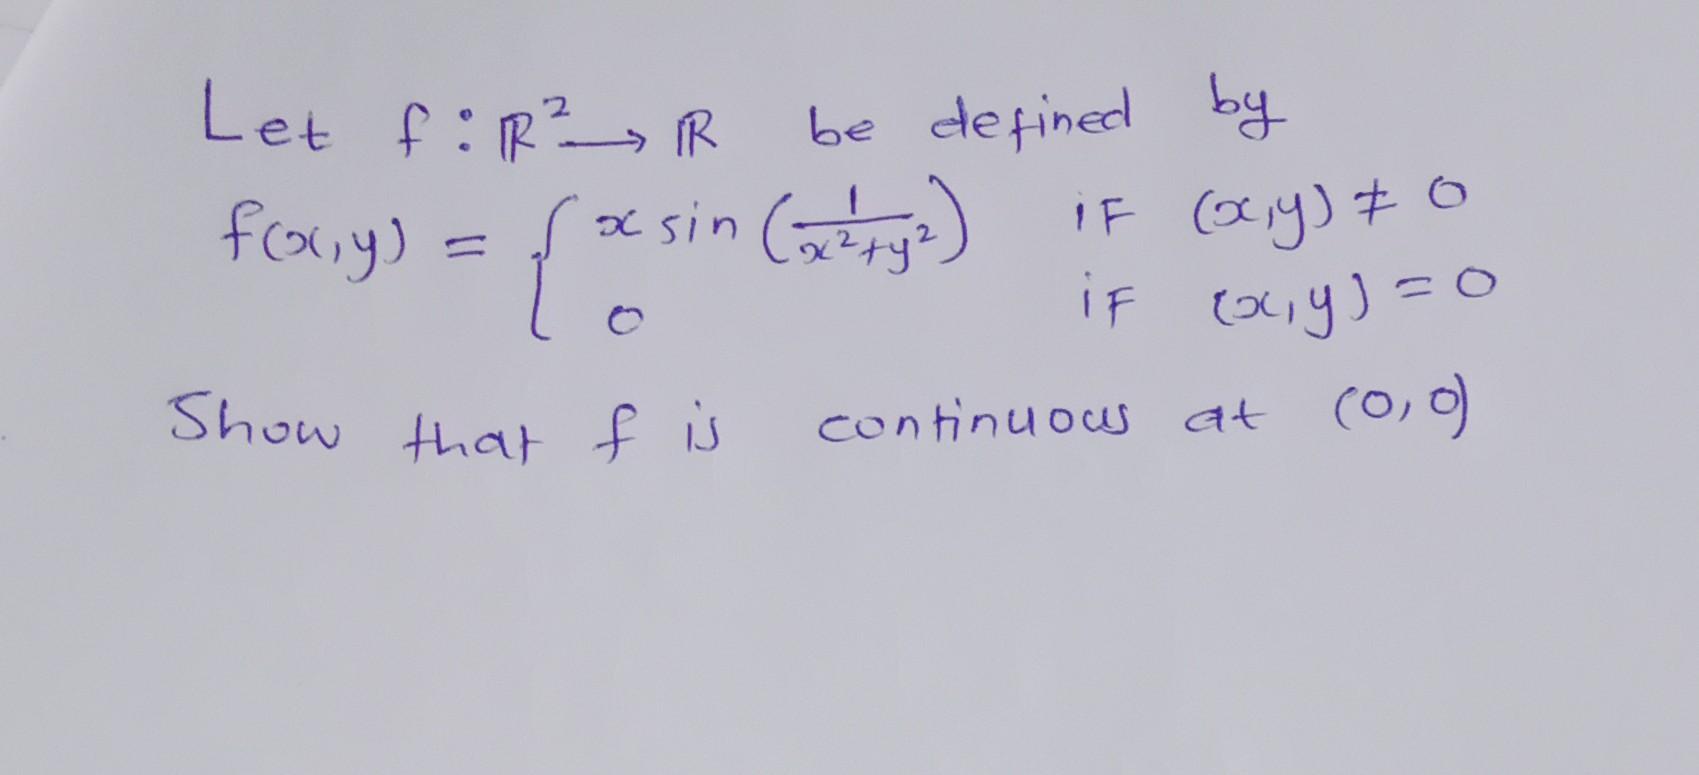 Let f : ℝ² → ℝ be defined by
f(x,y) = { x sin (1/(x²+y²)) if (x,y) ≠ 0
0 if (x,y) = 0
Show that f is continuous at (0,0)